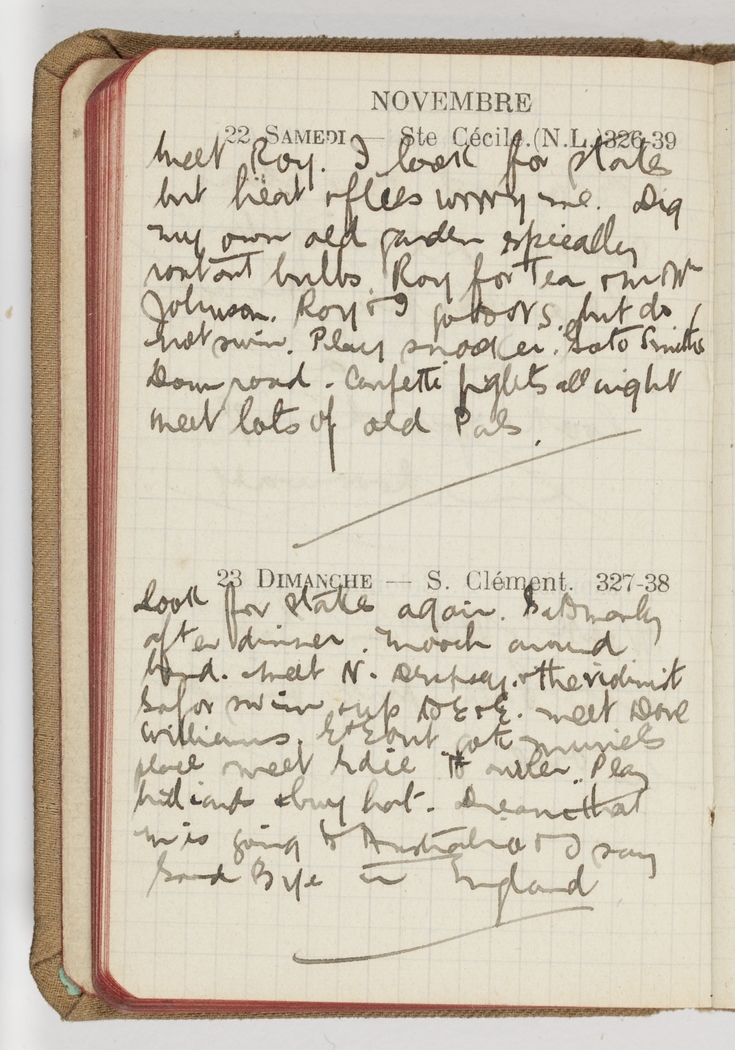 NOVEMBRE
22 SAMEDI — Ste Cécile. (N.L.) 326-39
Meet Roy. I look for skates
but heat & flees worry me. Dig
my own old garden specially
bulbs. Roy for Tea &
Johnson. Roy & I go to but do
not swim. Play snooker. Go to Smiths
Down road. Confetti fights all night
meet lots of old Pals.
23 DIMANCHE — S. Clément. 327-38
Look for skates again.
after dinner. Mooch around
meet N. Dempsey. & the
go for swim & up meet Dave
Williams. go to Muriels
place meet Play
billiards & hot. Dream that
M is going to Australia & I say
Good Bye in England